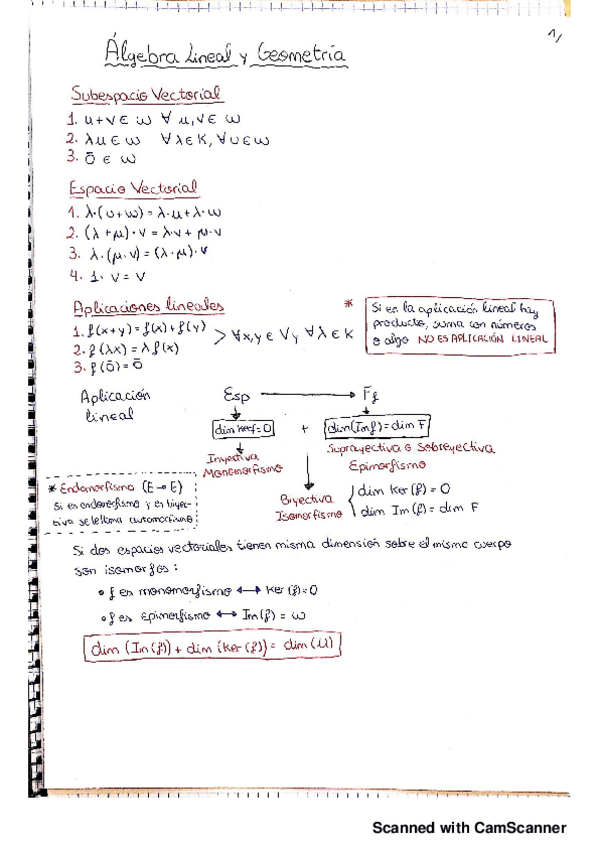 1/
Álgebra Lineal y Geometría
Subespacio Vectorial
1. u+v ∈ w ∀ u,v ∈ w
2. λu ∈ w ∀ λ ∈ K, ∀ u ∈ w
3. Ō ∈ w
Espacio Vectorial
1. λ·(u+w) = λ·u + λ·w
2. (λ+μ)·v = λ·v + μ·v
3. λ·(μ·v) = (λ·μ)·v
4. 1·v = v
Aplicaciones lineales
1. f(x+y) = f(x) + f(y)
2. f(λx) = λ f(x)
3. f(ō) = ō
> ∀x,y ∈ V y ∀ λ ∈ K
* Si en la aplicación lineal hay
producto, suma con números
o algo NO ES APLICACIÓN LINEAL
Aplicación
lineal
Esp → Ff
dim Kerf = 0 + dim(Imf) = dim F
Inyectiva
Monomorfismo
Suprayectiva o Sobreyectiva
Epimorfismo
Biyectiva
Isomorfismo
{ dim Ker(f) = 0
dim Im(f) = dim F
* Endomorfismo (E → E)
Si es endomorfismo y es biyec-
tiva se le llama automorfismo
Si dos espacios vectoriales tienen misma dimensión sobre el mismo cuerpo
son isomorfos:
• f es monomorfismo ↔ Ker(f) = 0
• f es Epimorfismo ↔ Im(f) = w
dim (Im(f)) + dim (Ker(f)) = dim (U)
Scanned with CamScanner